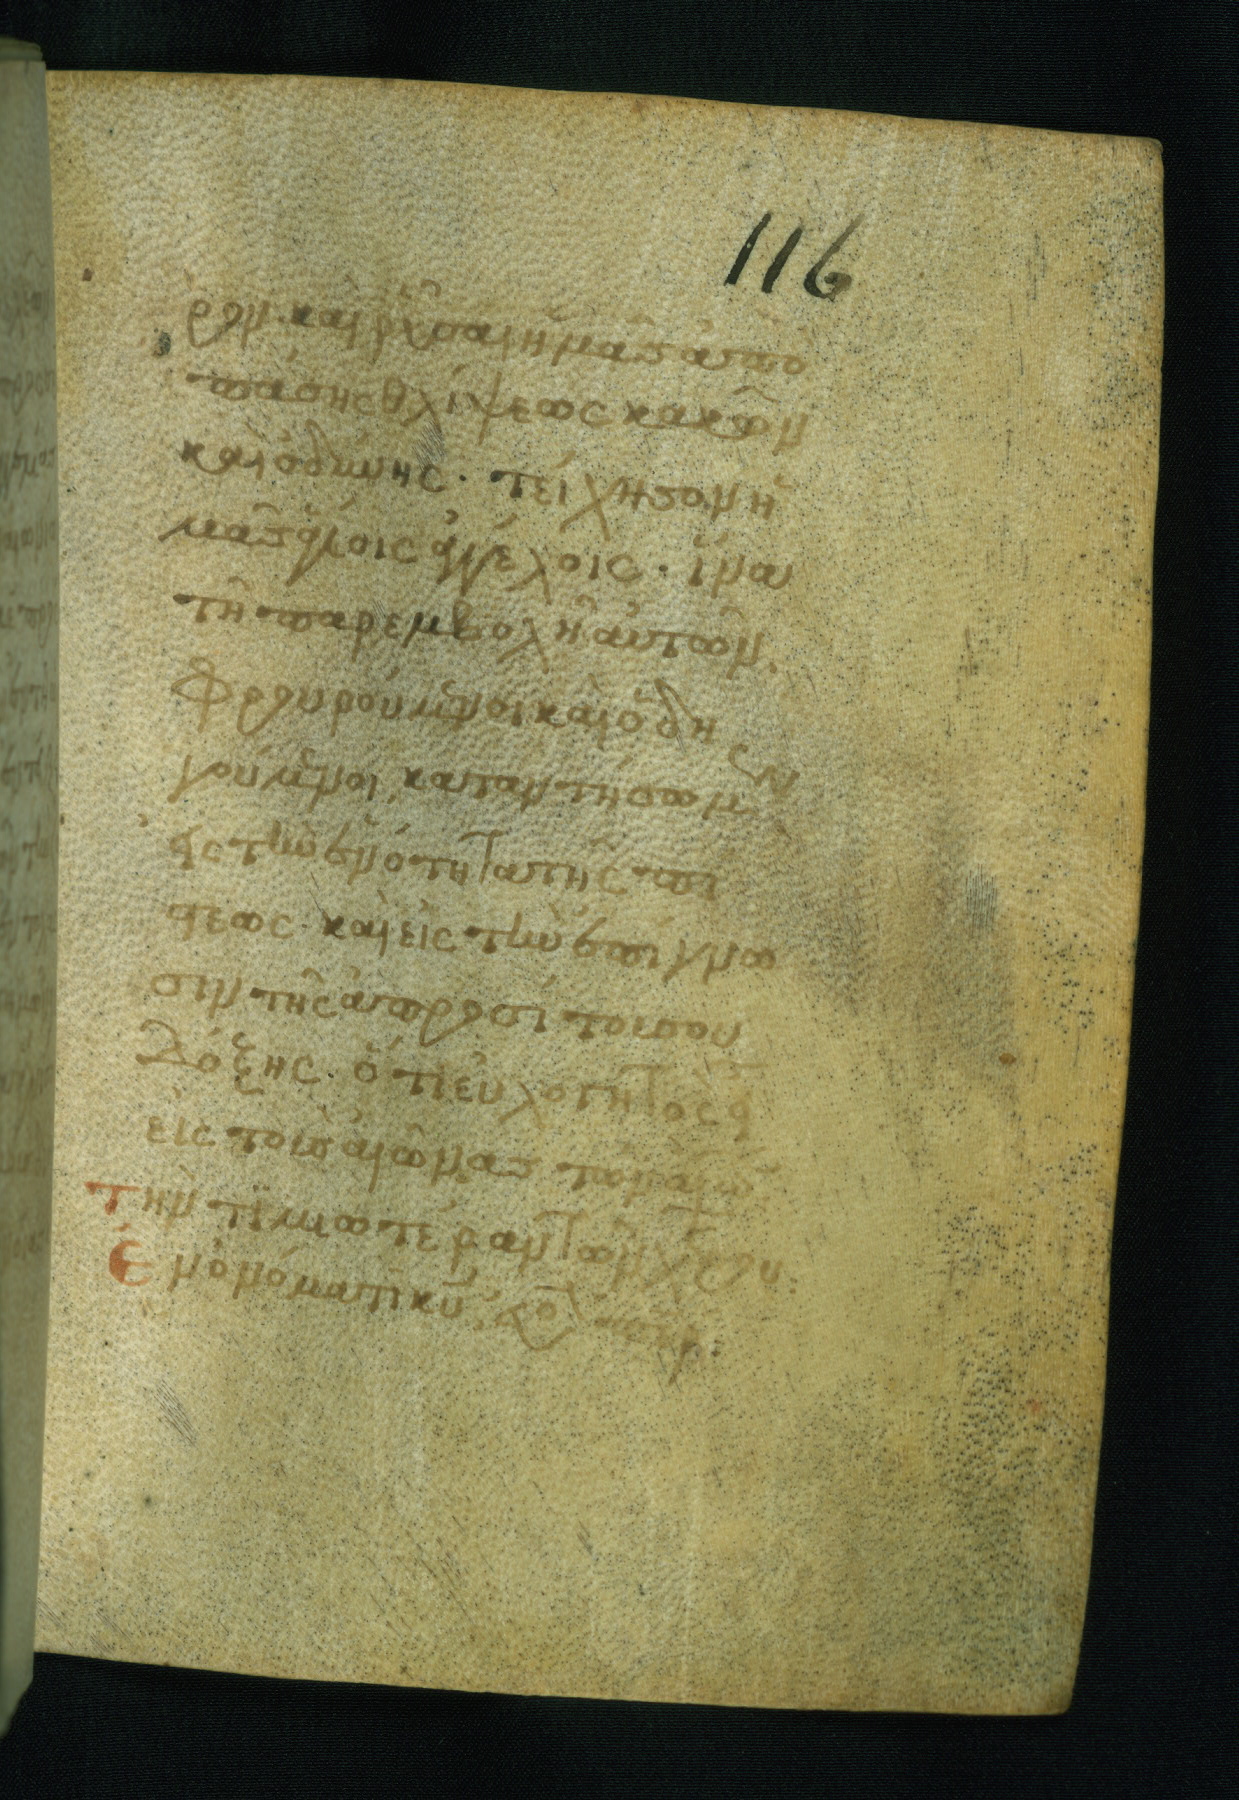 116
ρον· καὶ ῥύσαι ἡμᾶς ἀπὸ
πάσης θλίψεως κακῶν
καὶ ὀδύνης· τείχησον ἡ
μᾶς ἁγίοις ἀγγέλοις· ἵνα
τῆ παρεμβολῆ αὐτῶν
φρουρούμενοι καὶ ὁδη
γούμενοι, καταντήσωμεν
εἰς τὴν ἑνότητα τῆς πί
στεως· καὶ εἰς τὴν ἐπίγνω
σιν τῆς ἀπροσίτου σου
δόξης· ὅτι εὐλογητὸς εἶ
εἰς τοὺς αἰῶνας τῶν αἰώνων
Τὴν τιμιωτέραν τῶν χερου
Ἐν ὀνόματι κυ, εὐλόγησον